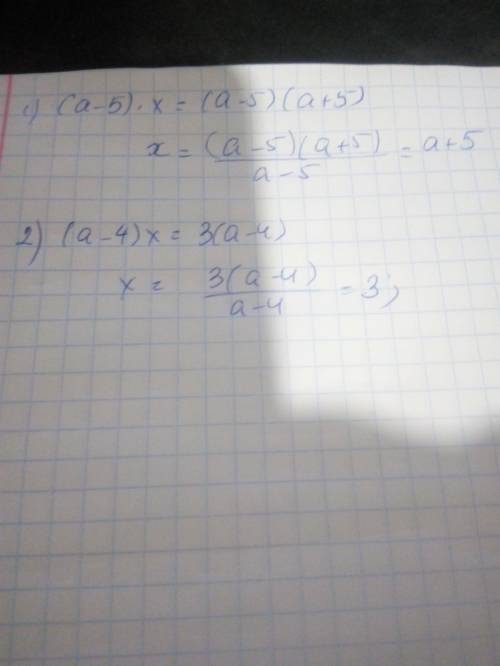 1) (a-5)·x = (a-5)(a+5)
x = (a-5)(a+5) / a-5 = a+5
2) (a-4)x = 3(a-4)
x = 3(a-4) / a-4 = 3;